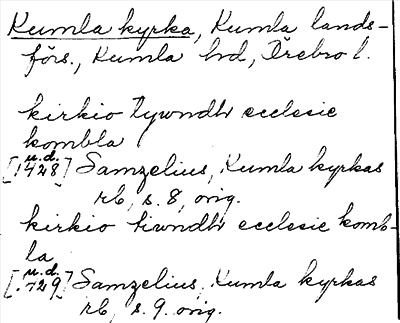 Kumla kyrka, Kumla lands-
förs., Kumla hd, Örebro l.
kirkio tywndh ecclesie
kombla
u.d.
[1428] Samzelius, Kumla kyrkas
rb, s. 8, orig.
kirkio tiwndh ecclesie komb-
la
u.d.
[1429] Samzelius, Kumla kyrkas
rb, s. 9. orig.